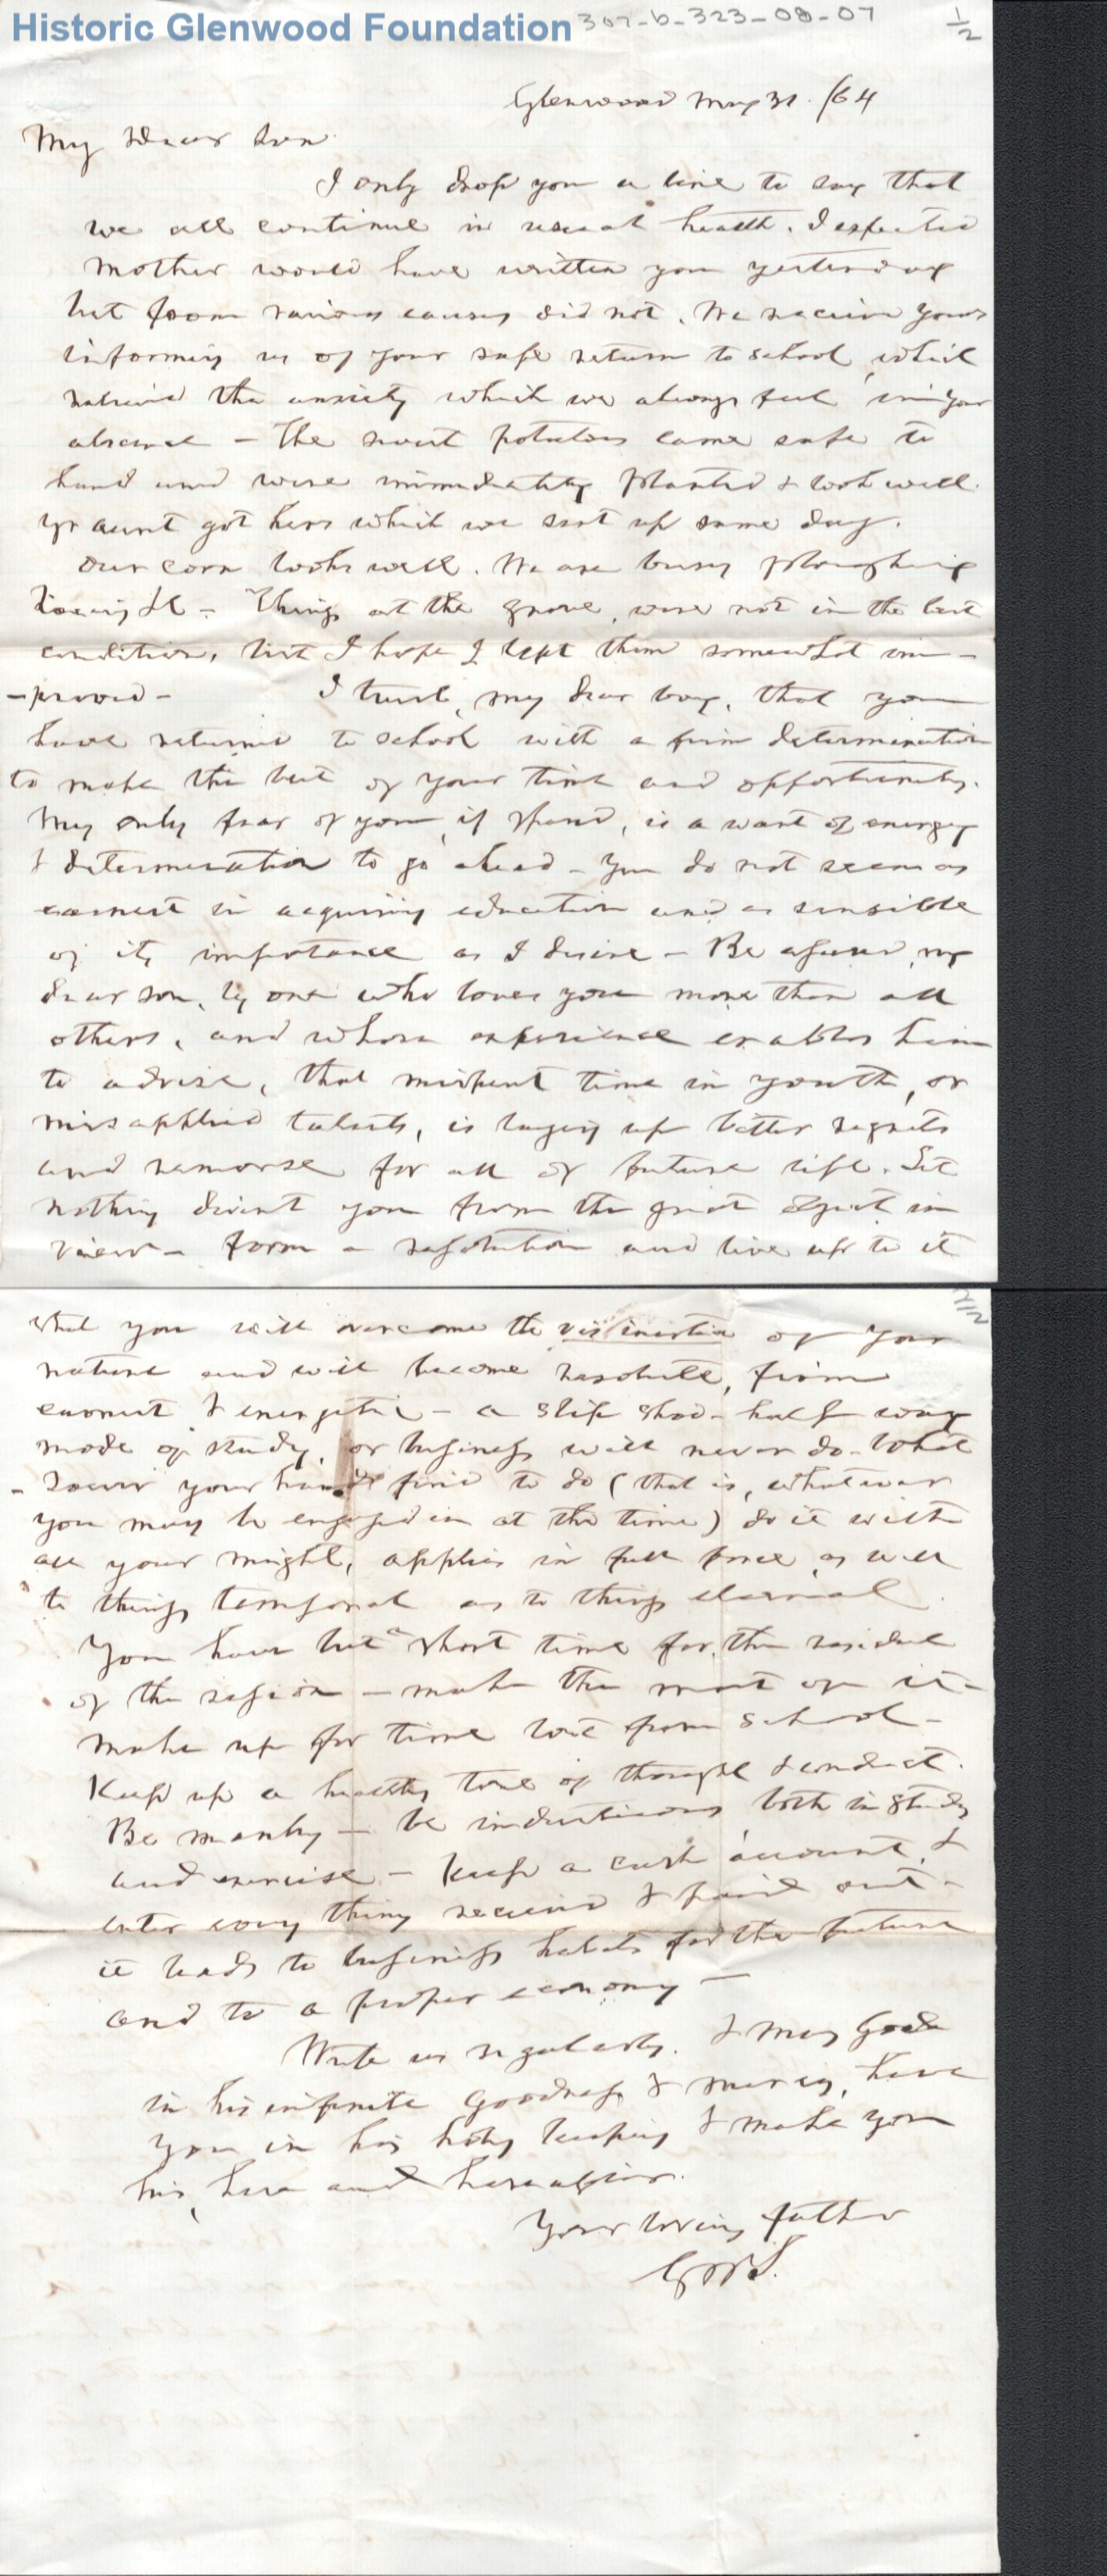 Historic Glenwood Foundation 307-b-323-08-07 1/2
Glenwood May 31. /64
My Dear Son
I only drop you a line to say that
we all continue in usual health. I expected
Mother would have written you yesterday
but from various causes did not. We receive yours
informing us of your safe return to school, which
relieved the anxiety which we always feel in your
absence - The sweet potatoes came safe to
hand and were immediately planted & look well.
Yr aunt got hers which we sent up same day.
Our corn looks well. We are busy ploughing
& - Things at the grove, were not in the best
condition, but I hope I left them somewhat im-
-proved - I trust, my dear boy, that you
have returned to school with a firm determination
to make the best of your time and opportunity.
My only fear of you, if spared, is a want of energy
& determination to go ahead - You do not seem as
earnest in acquiring education and as sensible
of its importance as I desire - Be assured, my
dear son, by one who loves you more than all
others, and whose experience enables him
to advise, that mispent time in youth, or
misapplied talents, is laying up bitter regrets
and remorse for all of future life. Let
nothing divert you from the great object in
view - form a resolution and live up to it
that you will overcome the vis inertia of your
nature and will become resolute, firm
earnest & energetic - a slip shod - half way
mode of study, or business will never do - What
-soever your hands find to do (that is, whatever
you may be engaged in at the time) do it with
all your might, applies in full force, as well
to things temporal as to things eternal.
You have but a short time for the residue
of the session - make the most of it -
make up for time lost from school -
Keep up a healthy tone of thought & conduct.
Be manly - be industrious both in study
and exercise - Keep a cash account, &
enter every thing received & paid out -
it leads to business habits for the future
and to a proper economy -
Write us regularly. & may God
in his infinite Goodness & mercy, have
you in his holy keeping & make you
his, here and hereafter.
Your loving father
2/2